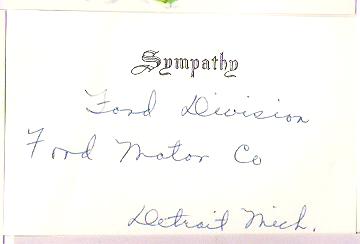 Sympathy
Ford Division
Ford Motor Co
Detroit Mich.